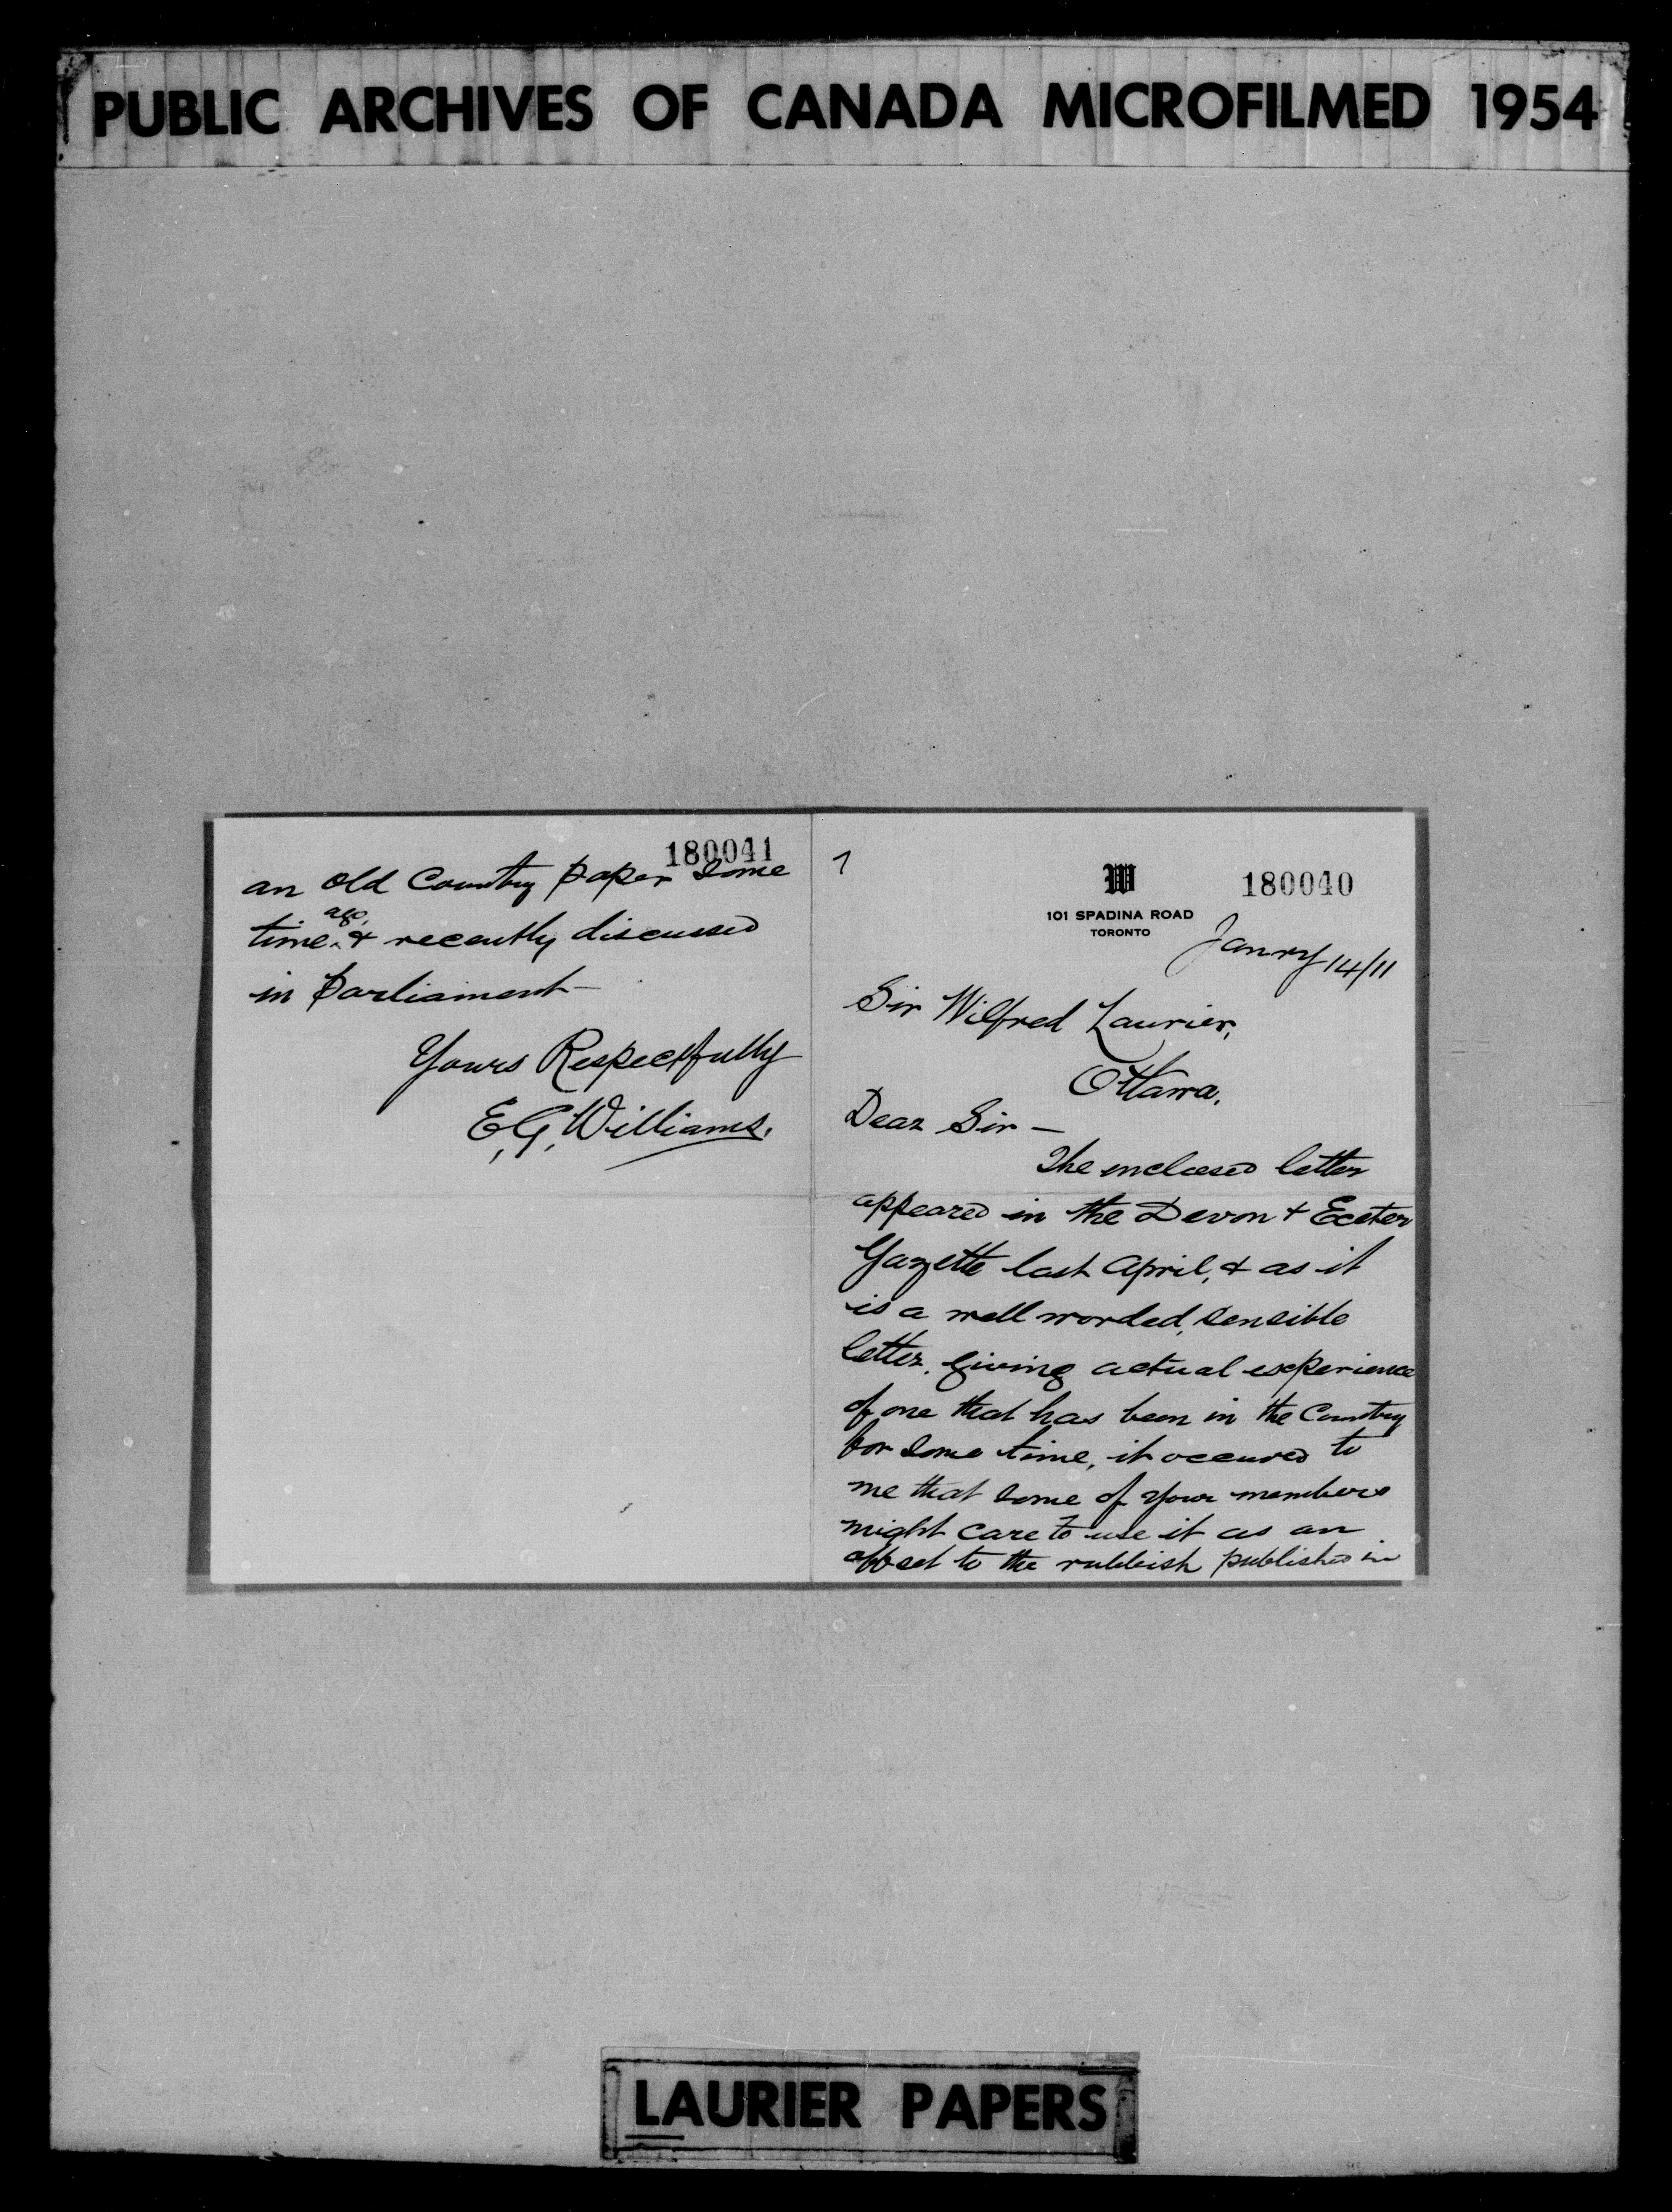 PUBLIC ARCHIVES OF CANADA MICROFILMED 1954
180040
W
101 SPADINA ROAD
TORONTO
Janry 14/11
Sir Wilfred Laurier,
Ottawa.
Dear Sir —
The enclosed letter
appeared in the Devon & Exeter
Gazette last April, & as it
is a well worded, sensible
letter, giving actual experience
of one that has been in the Country
for some time, it occured to
me that some of your members
might care to use it as an
offset to the rubbish published in
180041
an old Country paper some
time ago, & recently discussed
in Parliament —
Yours Respectfully
E.G. Williams.
LAURIER PAPERS